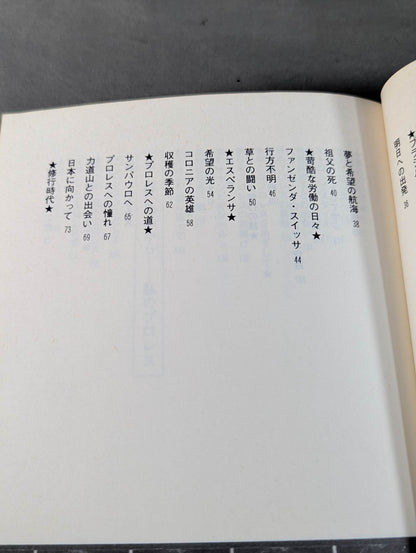 明日への出発 36
夢と希望の航海 38
祖父の死 40
★苛酷な労働の日々★
ファンゼンダ・スイッサ 44
行方不明 46
草との闘い 50
★エスペランサ★
希望の光 54
コロニアの英雄 58
収穫の季節 62
★プロレスへの道★
サンパウロへ 65
プロレスへの憧れ 67
力道山との出会い 69
日本に向かって 73
★修行時代★